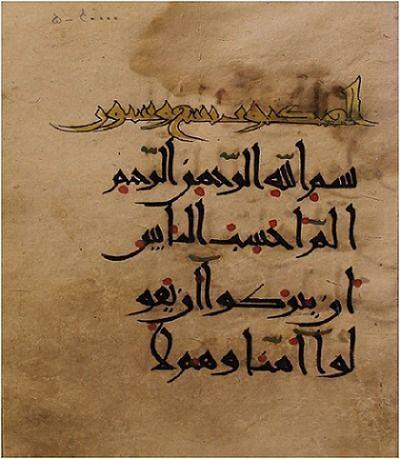 العنكبوت تسع وستون
بسم الله الرّحمن الرّحيم
الم احسب الناس
ان يتركوا ان يقو
لوا امنا وهم لا